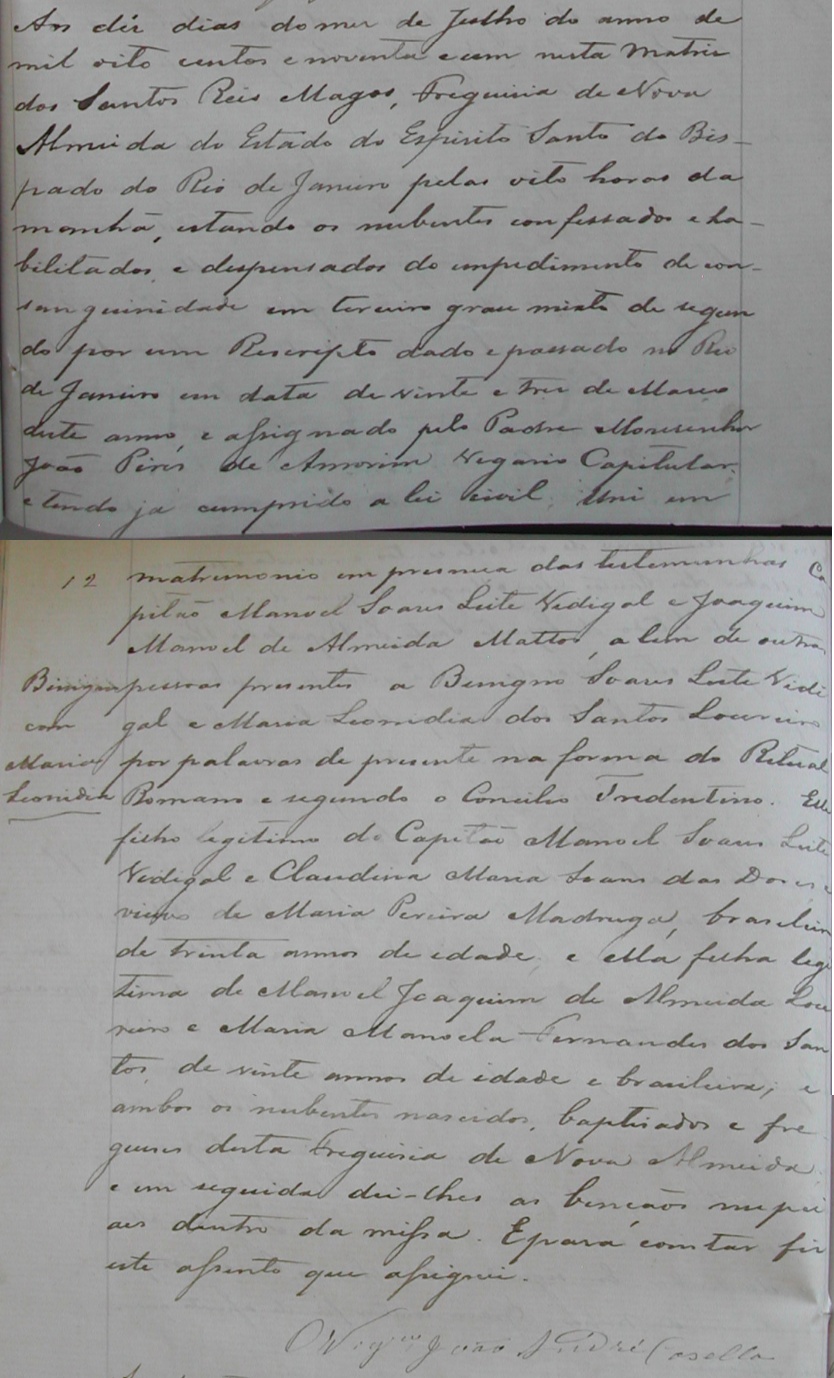 Aos déz dias do mez de Julho do anno de
mil oito centos e noventa e um nesta Matriz
dos Santos Reis Magos, Freguizia de Nova
Almeida do Estado do Espirito Santo do Bis-
pado do Rio de Janeiro pelas oito horas da
manhã, estando os nubentes confessados e ha-
bilitados, e despensados do impedimento de con-
sanguinidade em terceiro grau mixto de segun
do por um Rescripto dado e passado no Rio
de Janeiro em data de vinte e tres de Março
deste anno, e assignado pelo Padre Monsenhor
João Pires de Amorim Vegario Capitular,
e tendo ja cumprido a lei civil, Uni em
12 matrimonio em presença das testemunhas Ca
pitão Manoel Soares Leite Vidigal e Joaquim
Manoel de Almeida Mattos, alem de outras
pessoas presentes a Benigno Soares Leite Vidi
gal e Maria Leonidia dos Santos Loureiro
por palavras de presente na forma do Ritual
Romano e segundo o Concilio Tredentino. Elle
filho legitimo do Capitão Manoel Soares Leite
Vidigal e Claudina Maria Soares das Dores e
viuvo de Maria Pereira Madruga, brasileiro
de trinta annos de idade, e Ella filha legi
tima de Manoel Joaquim de Almeida Lou
reiro e Maria Manoela Fernandes dos San
tos, de vinte annos de idade e brasileira; e
ambos os nubentes nascidos, baptisados e fre
guezes desta Freguizia de Nova Almeida
e em seguida dei-lhes as bençãos nupci
aes dentro da missa. E para constar fiz
este assento que assignei.
O Vigrº João André Casella
Benigno
com
Maria
Leonidia